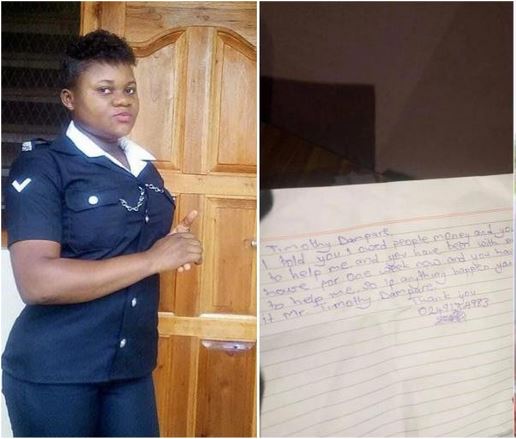 Timothy Dampare
I told you I owed people money and you
to help me and you have been with
house for one week now and you hav
to help me. so if anything happen you
it Mr. Timothy Dampare.
Thank you